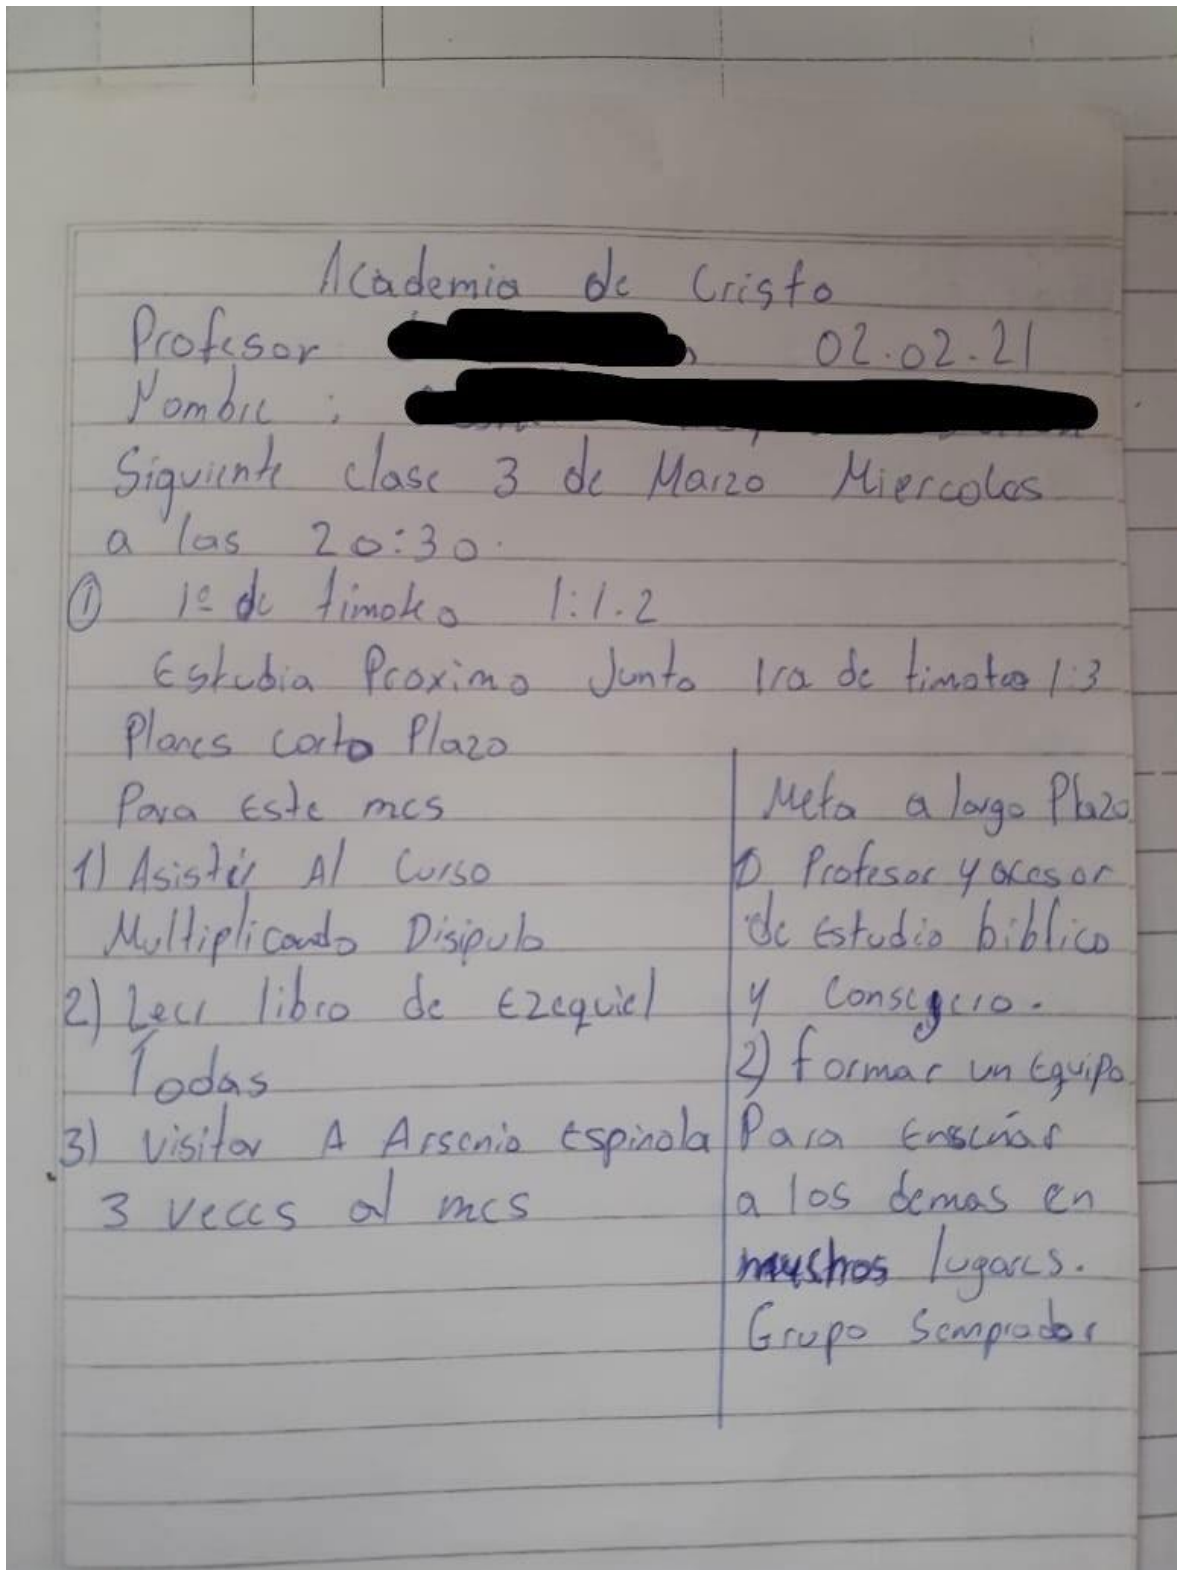 Academia de Cristo
Profesor 02.02.21
Nombre :
Siguiente clase 3 de Marzo Miercoles
a las 20:30.
① 1º de timoteo 1:1.2
Estudia Proximo Junto 1ra de timoteo 1:3
Planes corto Plazo
Para Este mes
1) Asistir Al Curso
Multiplicando Disipulo
2) Leer libro de Ezequiel
Todas
3) visitar A Arsenio Espinola
3 veces al mes
Meta a largo Plazo
1) Profesor y acesor
de Estudio biblico
y Consegero.
2) formar un Equipo
Para Enseñar
a los demas en
muchos lugares.
Grupo Semprador